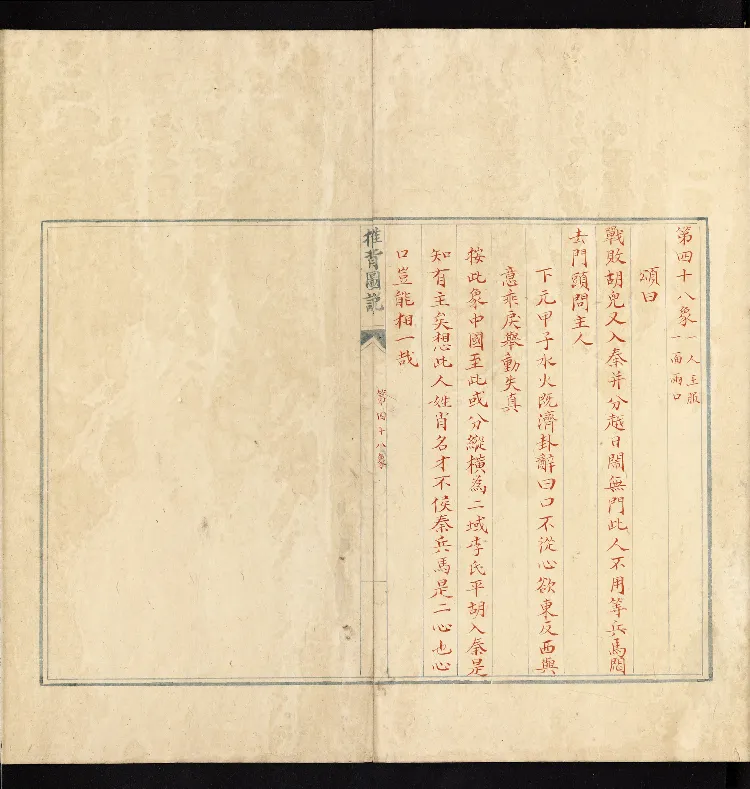 第四十八象一人王服
一面兩口
頌曰
戰敗胡兒又入秦并分越日鬧無門此人不用等兵馬閻
去門頭問主人
下元甲子水火既濟卦辭曰口不從心欲東反西與
意乖戾舉動失真
按此象中國至此或分縱橫為二域李氏平胡入秦是
知有主矣想此人姓肖名才不俟秦兵馬是二心也心
口豈能相一哉
推背圖說
第四十八象